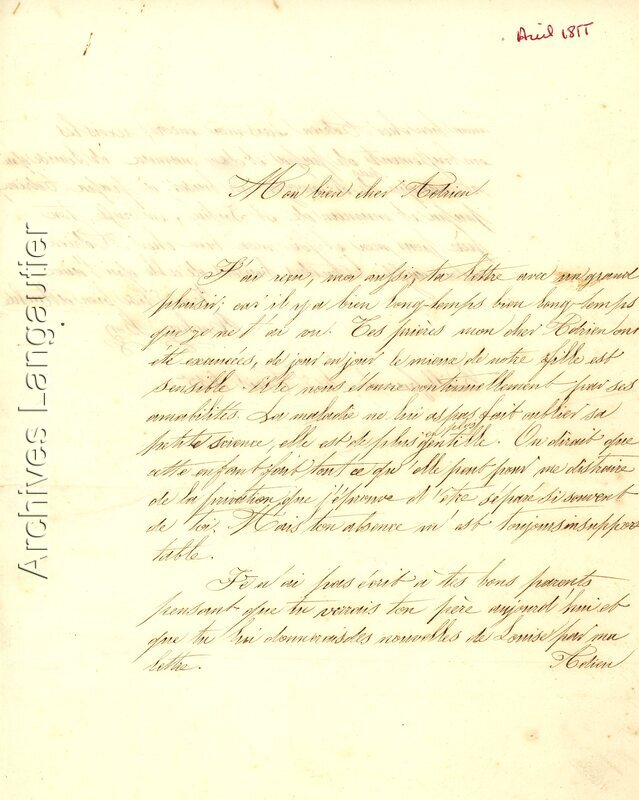 Avril 1855
Mon bien cher Adrien
J'ai reçu, moi aussi, ta lettre avec un grand
plaisir; car il y a bien long-temps bien long-temps
que je ne t'ai vu. Tes prières mon cher Adrien ont
été exaucées, de jour en jour le mieux de notre fille est
sensible. Elle nous étonne continuellement par ses
amabilités. La maladie ne lui a pas fait oublier sa
petite science, elle est de plus en plus gentille. On dirait que
cette enfant fait tout ce qu'elle peut pour me distraire
de la privation que j'éprouve d'être séparé si souvent
de toi. Mais ton absence m'est toujours insuppor
table.
Je n'ai pas écrit à tes bons parents
pensant que tu verrais ton père aujourd'hui et
que tu lui donnerais des nouvelles de Louise par ma
lettre.
Adieu
Archives Langautier